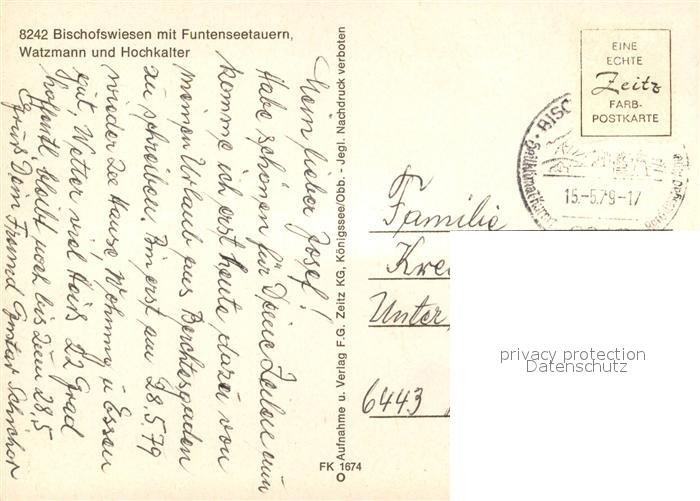 8242 Bischofswiesen mit Funtenseetauern,
Watzmann und Hochkalter
Mein lieber Josef!
Habe schönen für Deine Zeilen nun
komme ich erst heute dazu von
meinen Urlaub aus Berchtesgaden
zu schreiben, Bin erst am 28.5.79
wieder Zu Hause, Wohnung u Essen
gut, Wetter viel Heiß 22 Grad
hoffentl. bleibt noch bis zum 28,5
Gruß Dein Freund Gustav
Aufnahme u. Verlag F.G. Zeitz KG, Königssee/Obb. - Jegl. Nachdruck verboten
FK 1674
EINE
ECHTE
Zeitz
FARB-
POSTKARTE
BISC
Heilklimatischer
15.-5.79-17
Familie
Kre
Unter
6443
privacy protection
Datenschutz